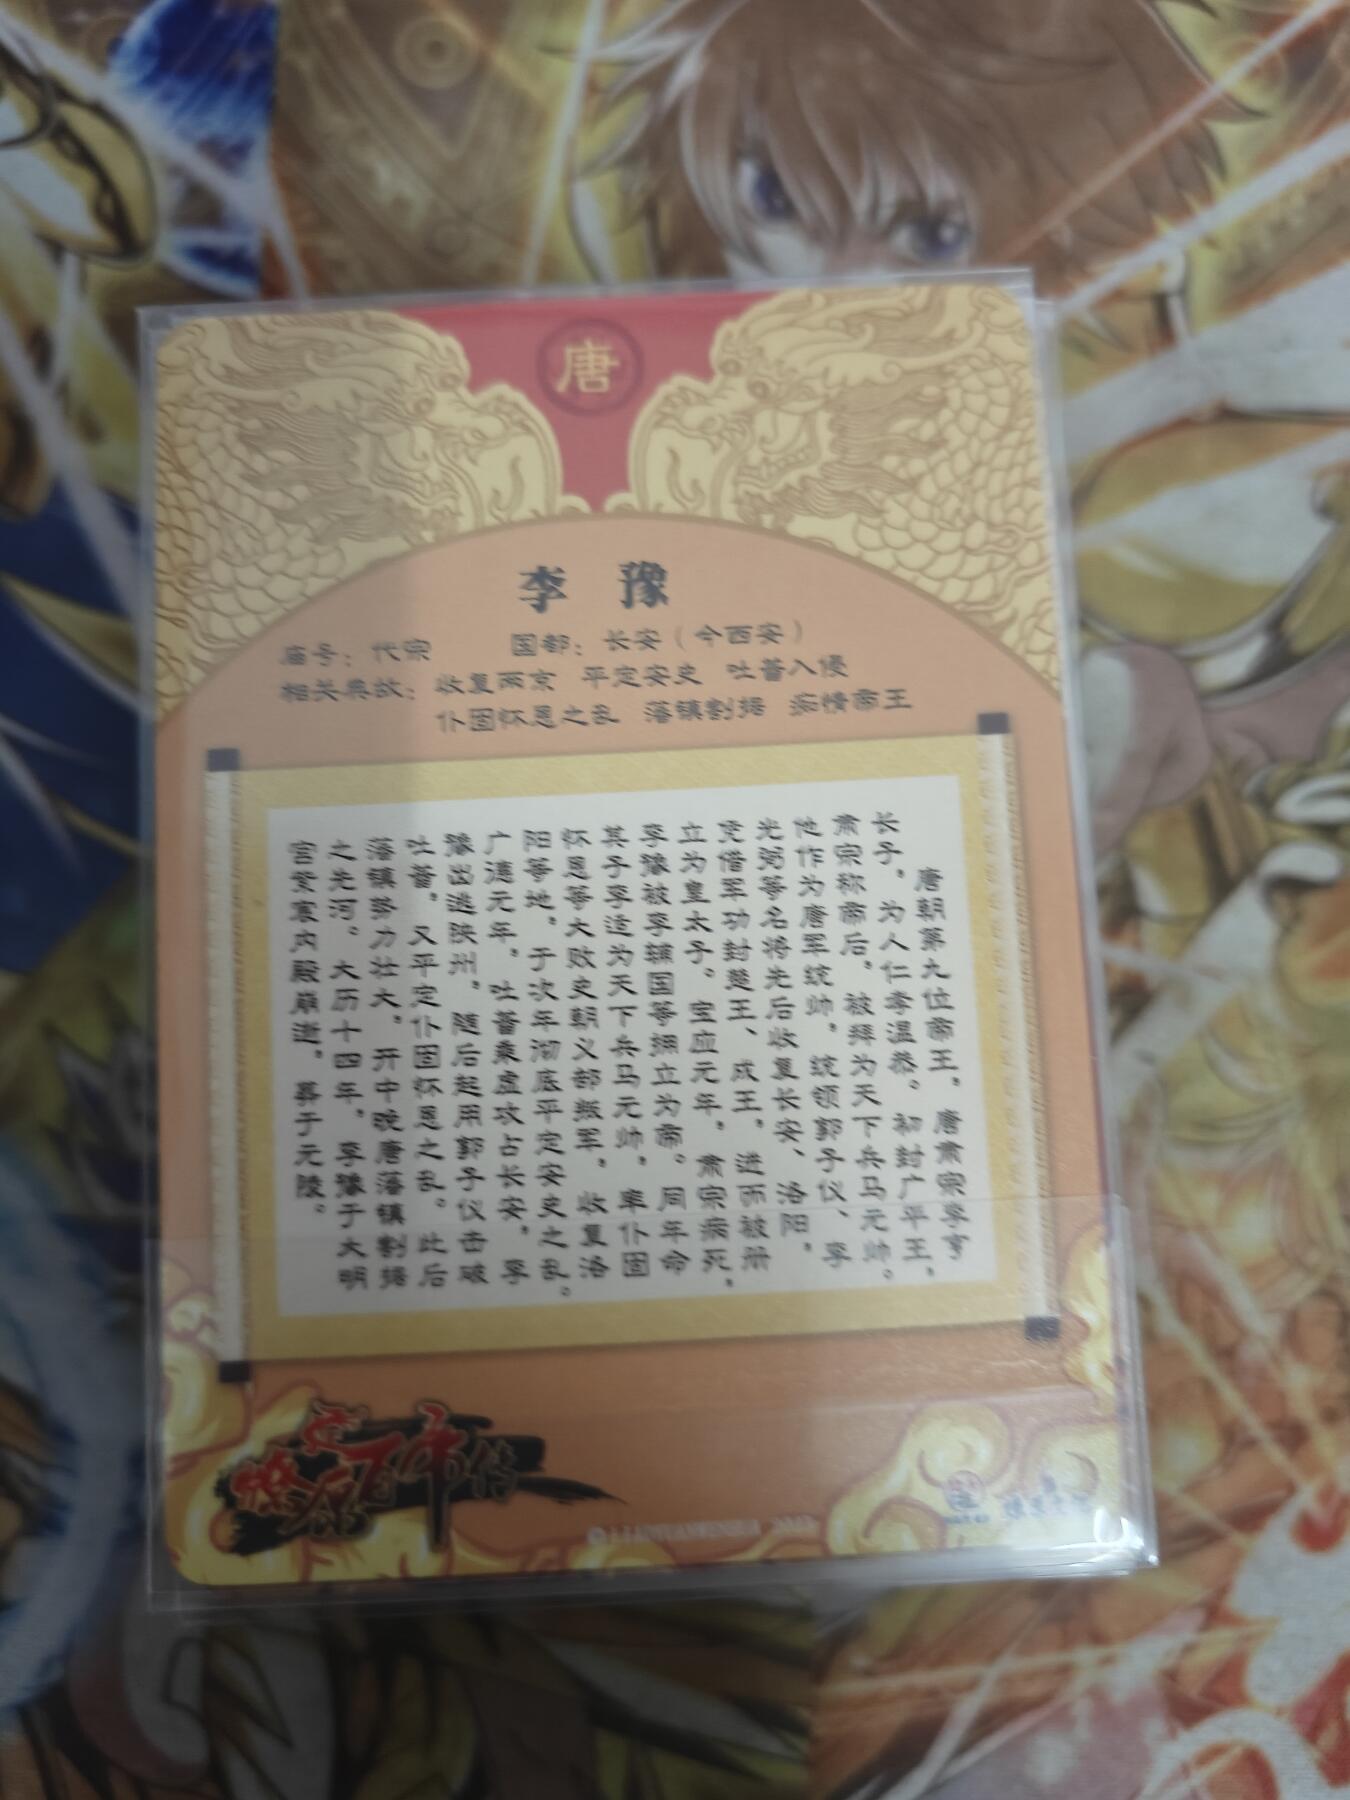 唐
李 豫
庙号：代宗 国都：长安（今西安）
相关典故：收复两京 平定安史 吐蕃入侵
仆固怀恩之乱 藩镇割据 痴情帝王
唐朝第九位帝王，唐肃宗李亨
长子，为人仁孝温恭。初封广平王，
肃宗称帝后，被拜为天下兵马元帅。
他作为唐军统帅，统领郭子仪、李
光弼等名将先后收复长安、洛阳，
凭借军功封楚王、成王，进而被册
立为皇太子。宝应元年，肃宗病死，
李豫被李辅国等拥立为帝。同年命
其子李适为天下兵马元帅，率仆固
怀恩等大败史朝义部叛军，收复洛
阳等地，于次年彻底平定安史之乱。
广德元年，吐蕃乘虚攻占长安，李
豫出逃陕州，随后起用郭子仪击破
吐蕃，又平定仆固怀恩之乱。此后
藩镇势力壮大，开中晚唐藩镇割据
之先河。大历十四年，李豫于大明
宫紫宸内殿崩逝，葬于元陵。
燎原百帝传